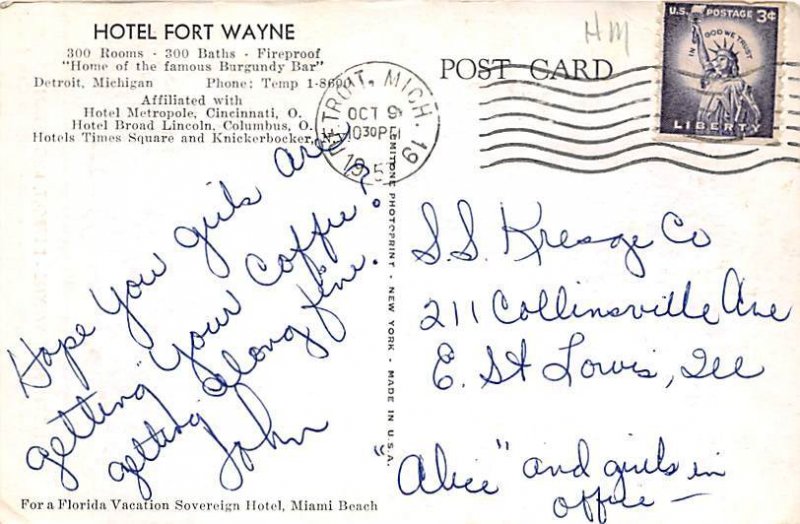 HOTEL FORT WAYNE
300 Rooms - 300 Baths - Fireproof
"Home of the famous Burgundy Bar"
Detroit, Michigan Phone: Temp 1-8600
Affiliated with
Hotel Metropole, Cincinnati, O.
Hotel Broad Lincoln, Columbus, O.
Hotels Times Square and Knickerbocker,
POST CARD
HM
U.S. POSTAGE 3¢
IN GOD WE TRUST
LIBERTY
DETROIT, MICH. 19
OCT 9
1030 PM
195
Hope you girls are
getting "Your Coffee"?
getting along fine.
John
MITONE PHOTOPRINT - NEW YORK - MADE IN U.S.A.
S.S. Kresge Co
211 Collinsville Ave
E. St Louis, Ill
"Alice" and girls in
office —
For a Florida Vacation Sovereign Hotel, Miami Beach